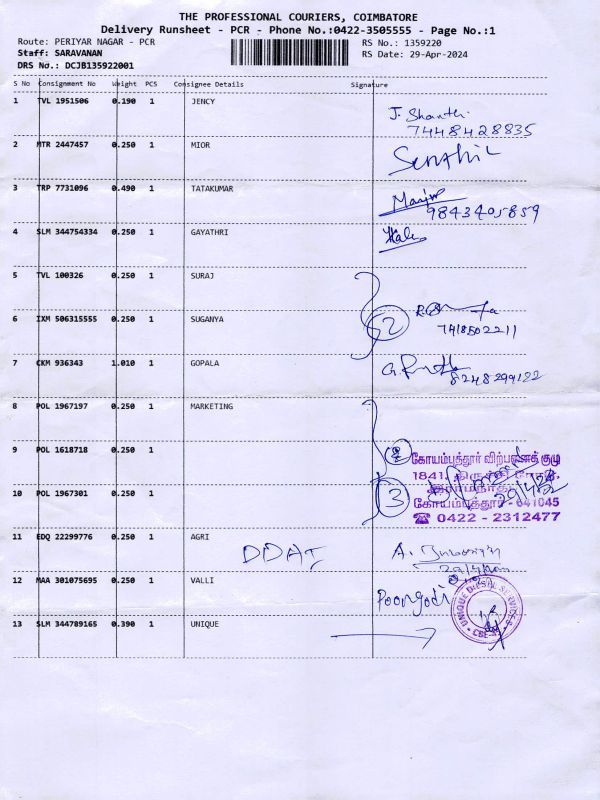 THE PROFESSIONAL COURIERS, COIMBATORE
Delivery Runsheet - PCR - Phone No.:0422-3505555 - Page No.:1
Route: PERIYAR NAGAR - PCR RS No.: 1359220
Staff: SARAVANAN RS Date: 29-Apr-2024
DRS No.: DCJB135922001
S No Consignment No Weight PCS Consignee Details Signature
1 TVL 1951506 0.190 1 JENCY J. Shanthi
7448428835
2 MTR 2447457 0.250 1 MIOR Senthil
3 TRP 7731096 0.490 1 TATAKUMAR
9843405859
4 SLM 344754334 0.250 1 GAYATHRI
5 TVL 100326 0.250 1 SURAJ
6 IXM 506315555 0.250 1 SUGANYA 2
7418502211
7 CKM 936343 1.010 1 GOPALA
8248299122
8 POL 1967197 0.250 1 MARKETING
9 POL 1618718 0.250 1 கோயம்புத்தூர் விற்பனைக் குழு
1841, திருச்சி ரோடு,
இராமநாதபுரம்
10 POL 1967301 0.250 1 3 கோயம்புத்தூர் - 641045
☎ 0422 - 2312477
11 EDQ 22299776 0.250 1 AGRI DDAT
12 MAA 301075695 0.250 1 VALLI Poongodi
13 SLM 344789165 0.390 1 UNIQUE
UNIQUE DIESEL SERVICES